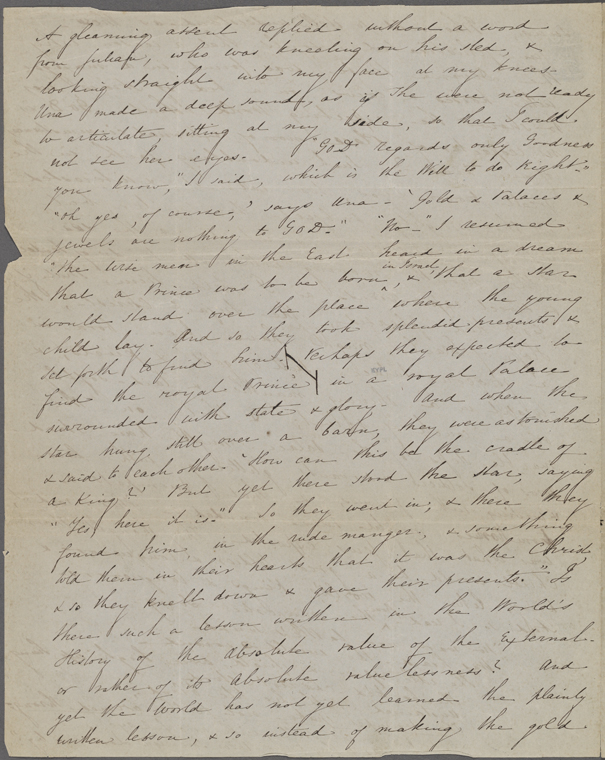 A gleaming assent replied without a word
from Julian, who was kneeling on his sled, &
looking straight into my face at my knees
Una made a deep sound, as if she were not ready
to articulate, sitting at my side, so that I could
not see her eyes. "GOD regards only Goodness
you know," I said, which is the Will to do Right."
"oh yes, of course," says Una - "Gold & Palaces &
jewels are nothing to GOD." "No -" I resumed
"the wise men in the East heard in a dream
that a Prince was to be born in Israel, & that a star
would stand over the place where the young
child lay. And so they took splendid presents &
set forth to find him. Perhaps they expected to
find the royal Prince in a royal Palace
surrounded with state & glory. And when the
star hung still over a barn, they were astonished
& said to each other. "How can this be the cradle of
a King?' But yet there stood the star, saying
"Yes, here it is." So they went in, & there they
found him, in the rude manger, & something
told them in their hearts that it was the Christ,
& so they knelt down & gave their presents." Is
there such a lesson written in the World's
History of the absolute value of the External -
or rather of its absolute valuelessness? And
yet the world has not yet learned the plainly
written lesson, & so instead of making the gold